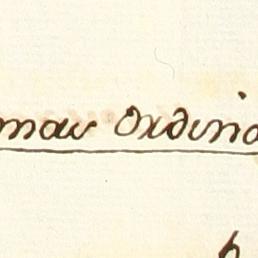 mas Ordina